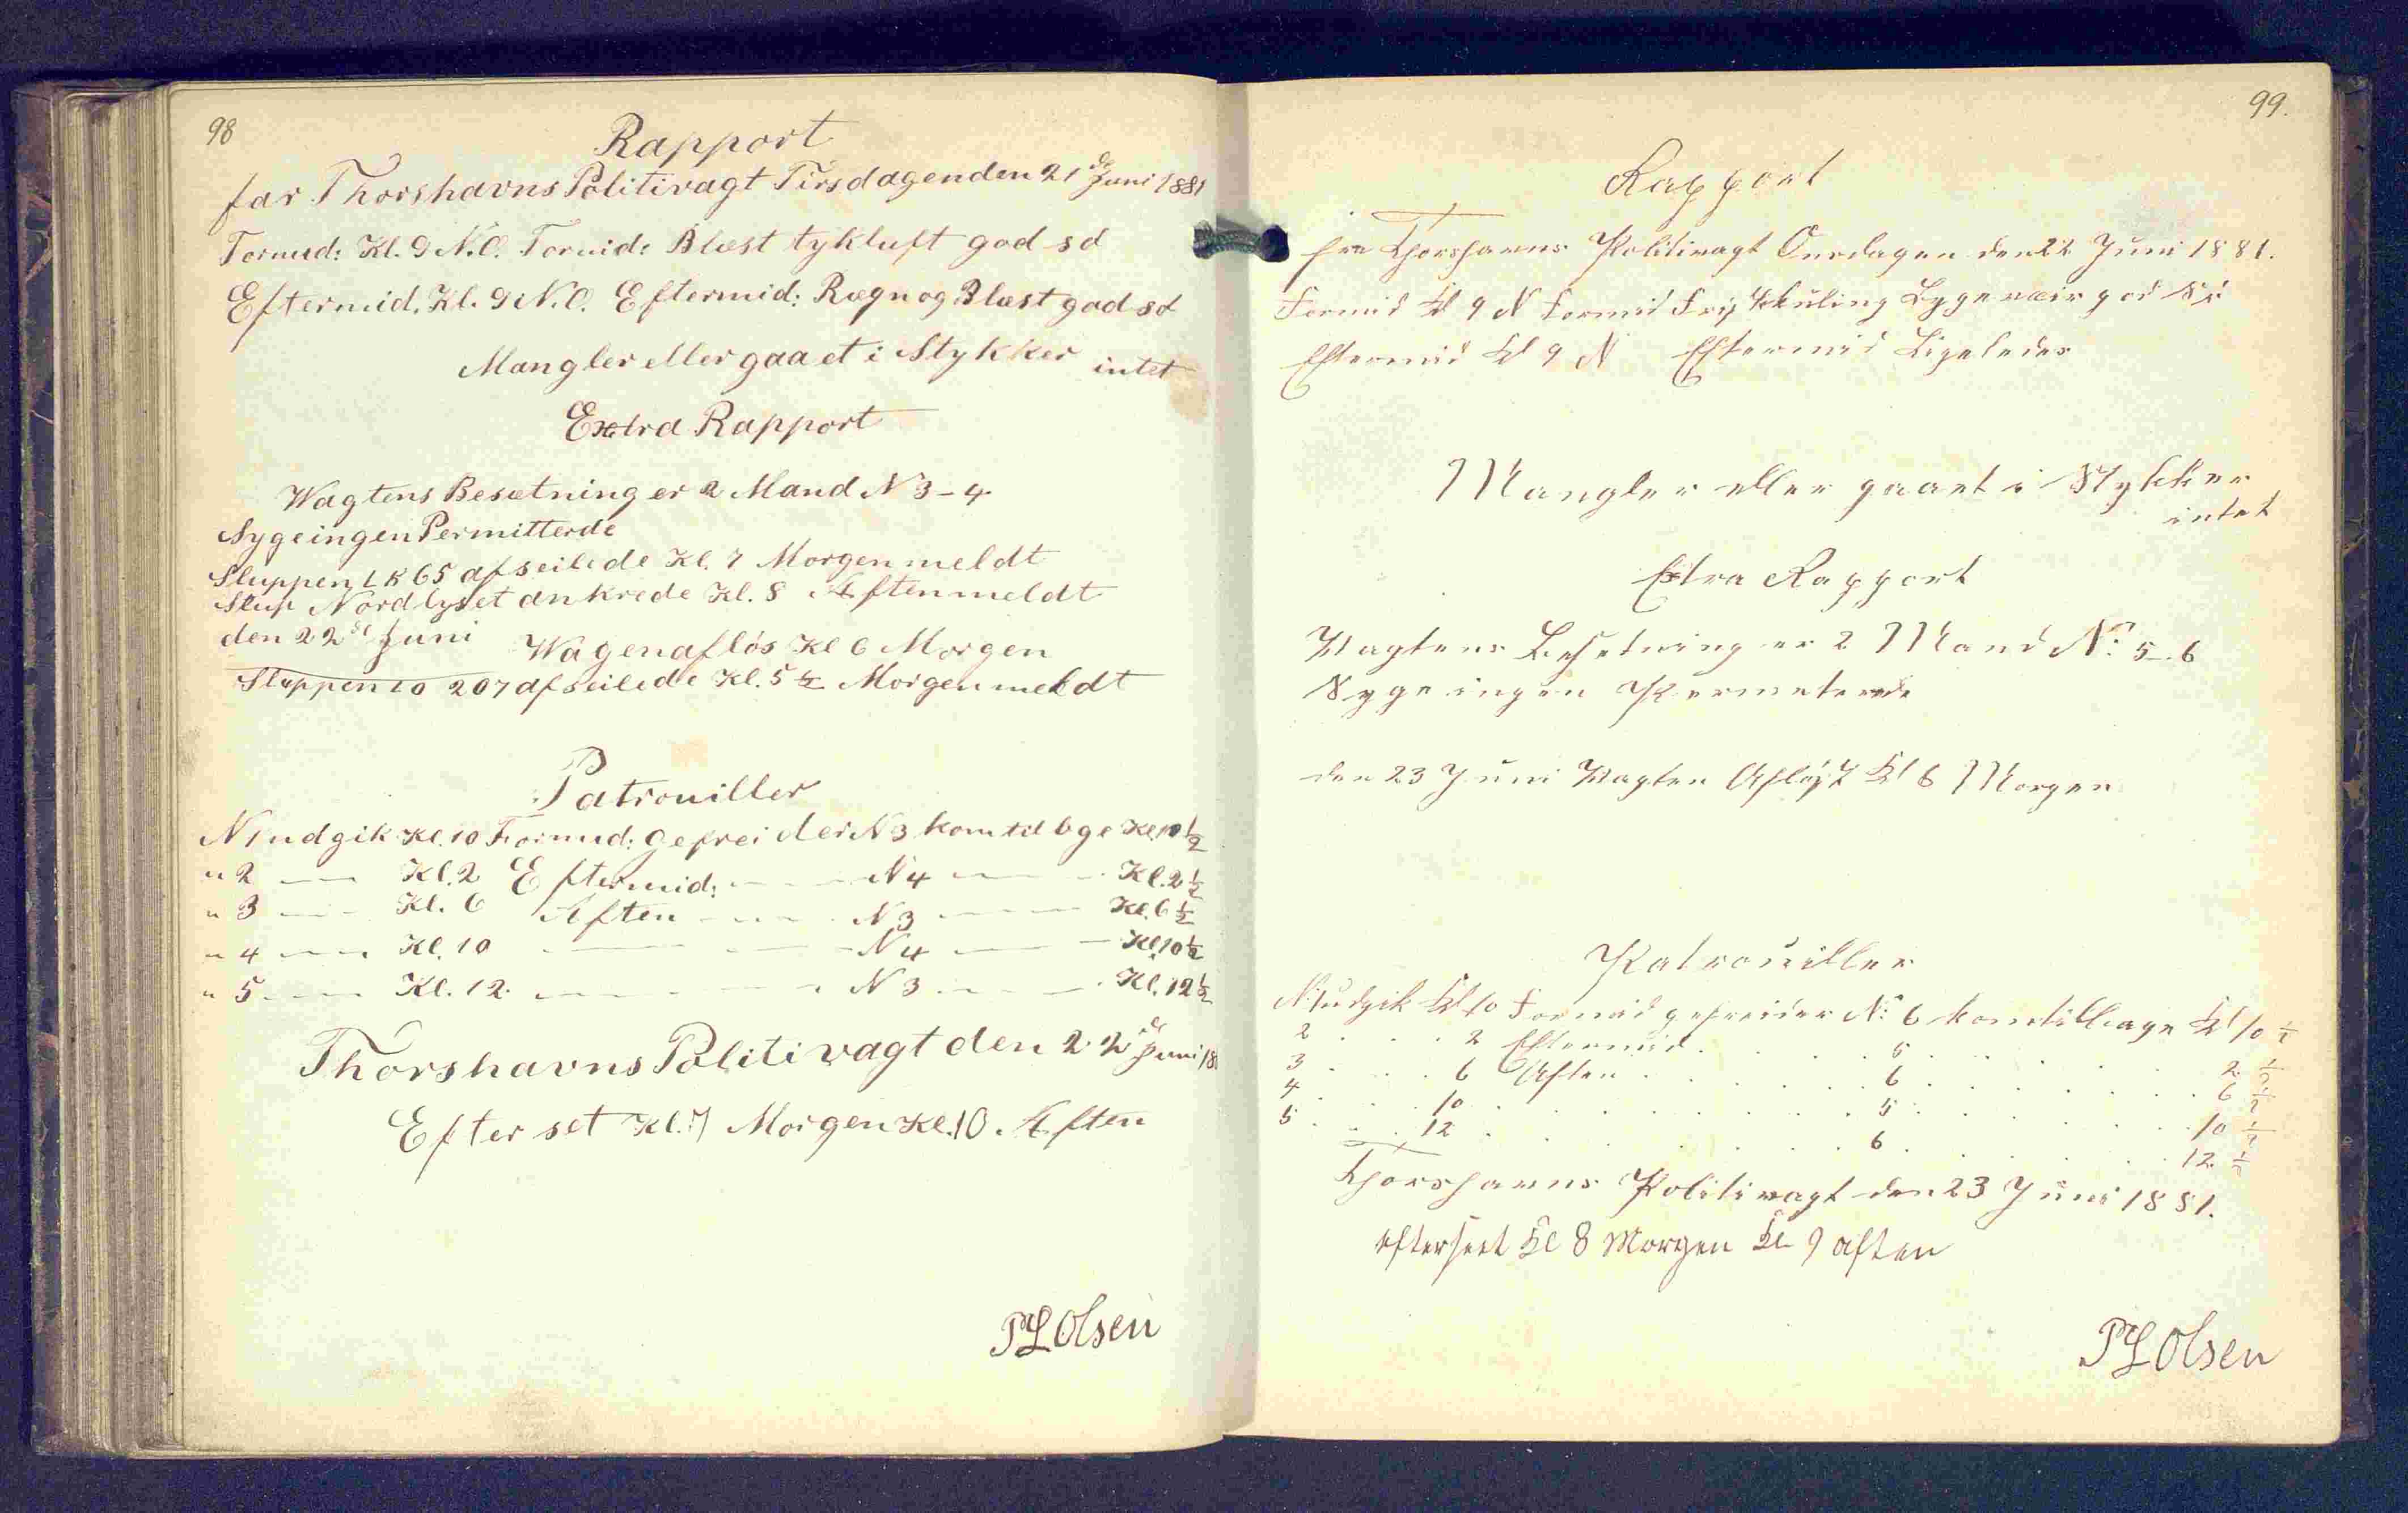 98
Rapport
far Thorshavns Politivagt Tirsdagen den 21de Juni 1881
Formid: Kl. 9 N.O. Formid: Blæst tykluft god sö
Eftermid. Kl. 9 N.O. Eftermid: Rægn og Blæst god sö
Mangler eller gaaet i Stykker intet
Extra Rapport
Wagtens Besætning er 2 Mand N 3-4
Syge ingen Permitterde
Sluppen LK 65 afseilede Kl. 7 Morgen meldt
Slup Nordlyset ankrede Kl. 8 Aften meldt
den 22de Juni Wagen aflös Kl 6 Morgen
Sluppen 207 afseilede Kl. 5 1/2 Morgen meldt
Patrouiller
N 1 udgik Kl. 10 Formid: Gefreider N 3 kom tilbge Kl. 10 1/2
" 2 — Kl. 2 Eftermid: — N 4 — Kl. 2 1/2
" 3 — Kl. 6 Aften — N 3 — Kl. 6 1/2
" 4 — Kl. 10 — N 4 — Kl. 10 1/2
" 5 — Kl. 12. — N 3 — Kl. 12 1/2
Thorshavns Politivagt den 22de Juni 18
Efter set Kl. 7 Morgen Kl. 10 Aften
PL Olsen
99.
Rapport
fra Thorshavns Politivagt Onsdagen den 22 Juni 1881.
Formid Kl 9 N Formid Frisk Kuling Bygeveir god Sö
Eftermid Kl 9 N Eftermid Ligeledes
Mangler eller gaaet i Stykker
intet
Extra Rapport
Wagtens Besetning er 2 Mand No: 5-6
Syge ingen Permeterede
den 23 Juni Wagten Afløst Kl 6 Morgen
Patrouiller
N: 1 udgik Kl 10 Formid gefreider No: 6 kom tilbage Kl 10 1/2
2 . . . 2 Eftermid . . . 5 . . . 2 1/2
3 . . . 6 Aften . . . 6 . . . 6 1/2
4 . . . 10 . . . 5 . . . 10 1/2
5 . . . 12 . . . 6 . . . 12 1/2
Thorshavns Politivagt den 23 Juni 1881.
efterseet Kl 8 Morgen Kl 9 aften
PL Olsen